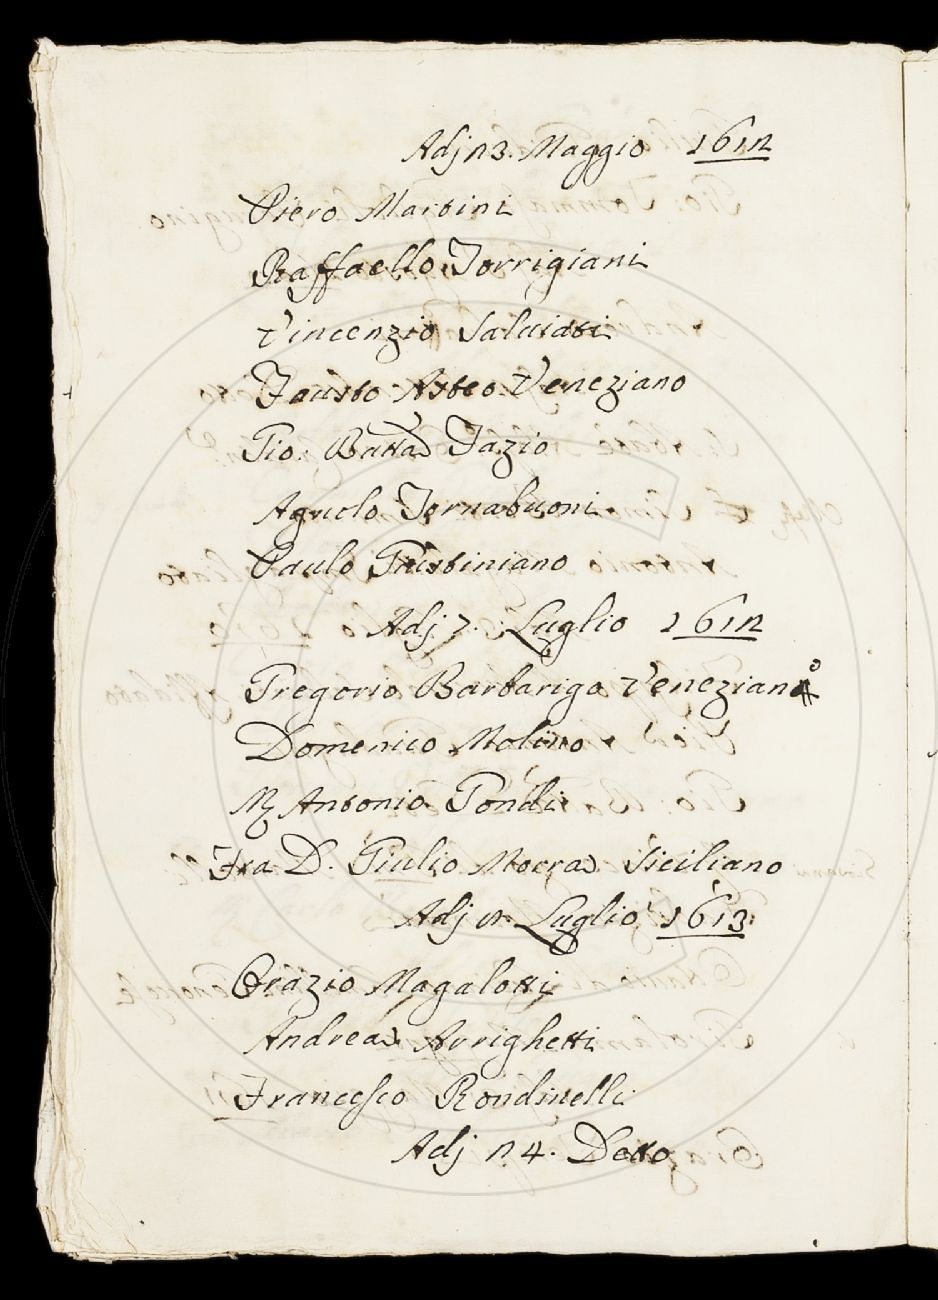 Adj 23. Maggio 1612
Piero Martini
Raffaello Torrigiani
Vincenzio Salviati
Fausto Asteo Veneziano
Gio: Batta Fazio
Agnolo Tornabuoni
Paulo Giustiniano
Adj 7. Luglio 1612
Gregorio Barbarigo Veneziano
Domenico Molino
M Antonio Gondi
Fra D. Giulio Siciliano
Adj 2. Luglio 1613
Orazio Magalotti
Andrea Arrighetti
Francesco Rondinelli
Adj 24. Detto